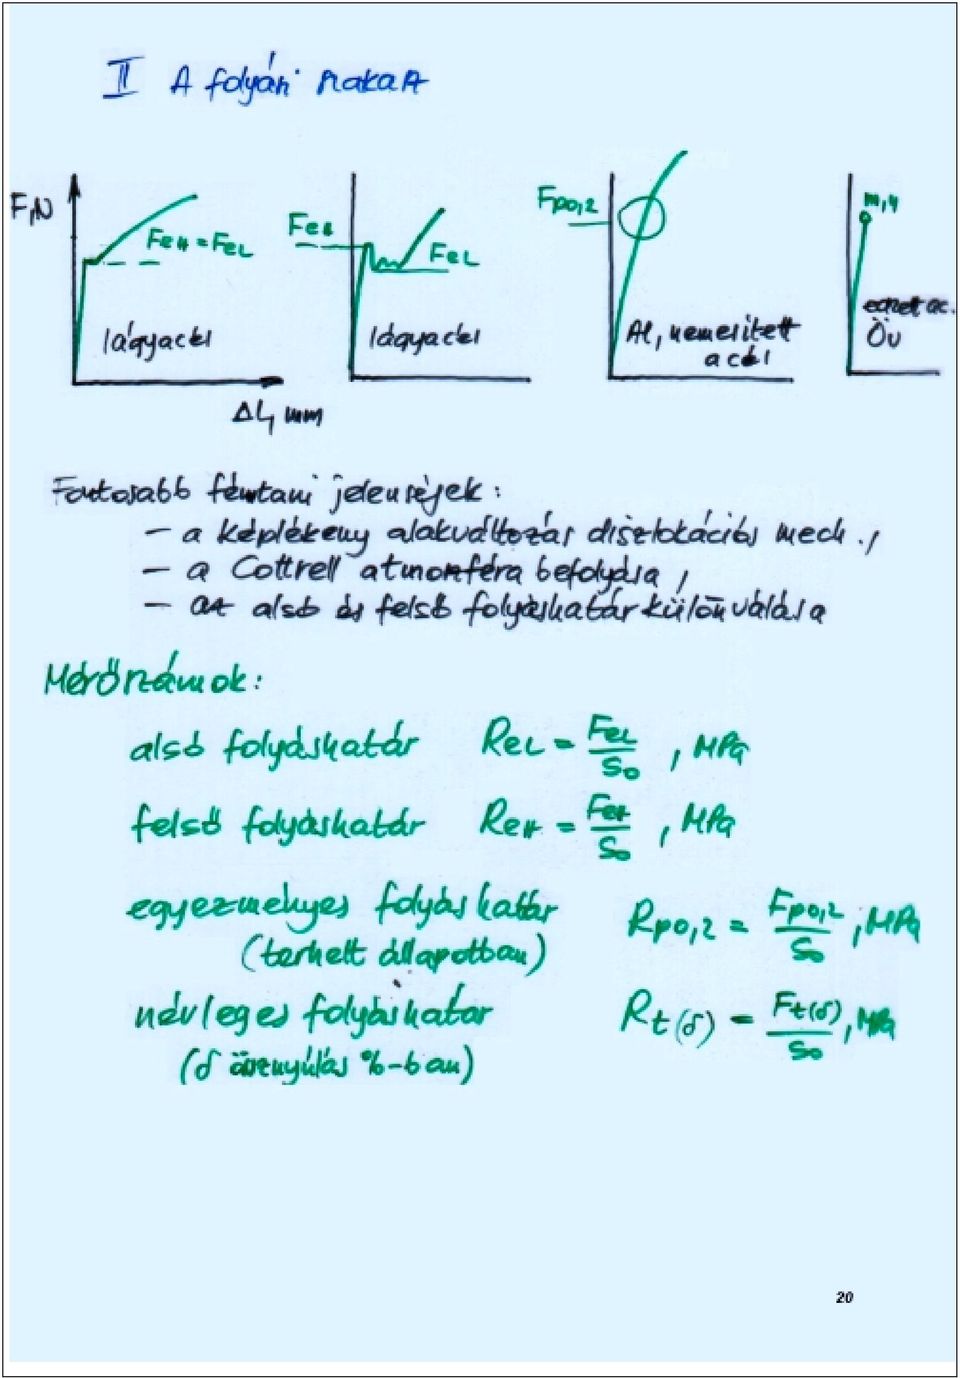 II A folyási szakasz
F, N
FeH = FeL
lágyacél
ΔL, mm
FeH
FeL
lágyacél
Fp0,2
Al, nemesített
acél
m, u
edzett ac.
Öv
Fontosabb fémtani jelenségek:
– a képlékeny alakváltozás diszlokációs mech.,
– a Cottrell atmoszféra befolyása,
– az alsó és felső folyáshatár különválása
Mérőszámok:
alsó folyáshatár ReL = FeL / S0 , MPa
felső folyáshatár ReH = FeH / S0 , MPa
egyezményes folyáshatár Rp0,2 = Fp0,2 / S0 , MPa
(terhelt állapotban)
névleges folyáshatár Rt(δ) = Ft(δ) / S0 , MPa
(δ össznyúlás %-ban)
20